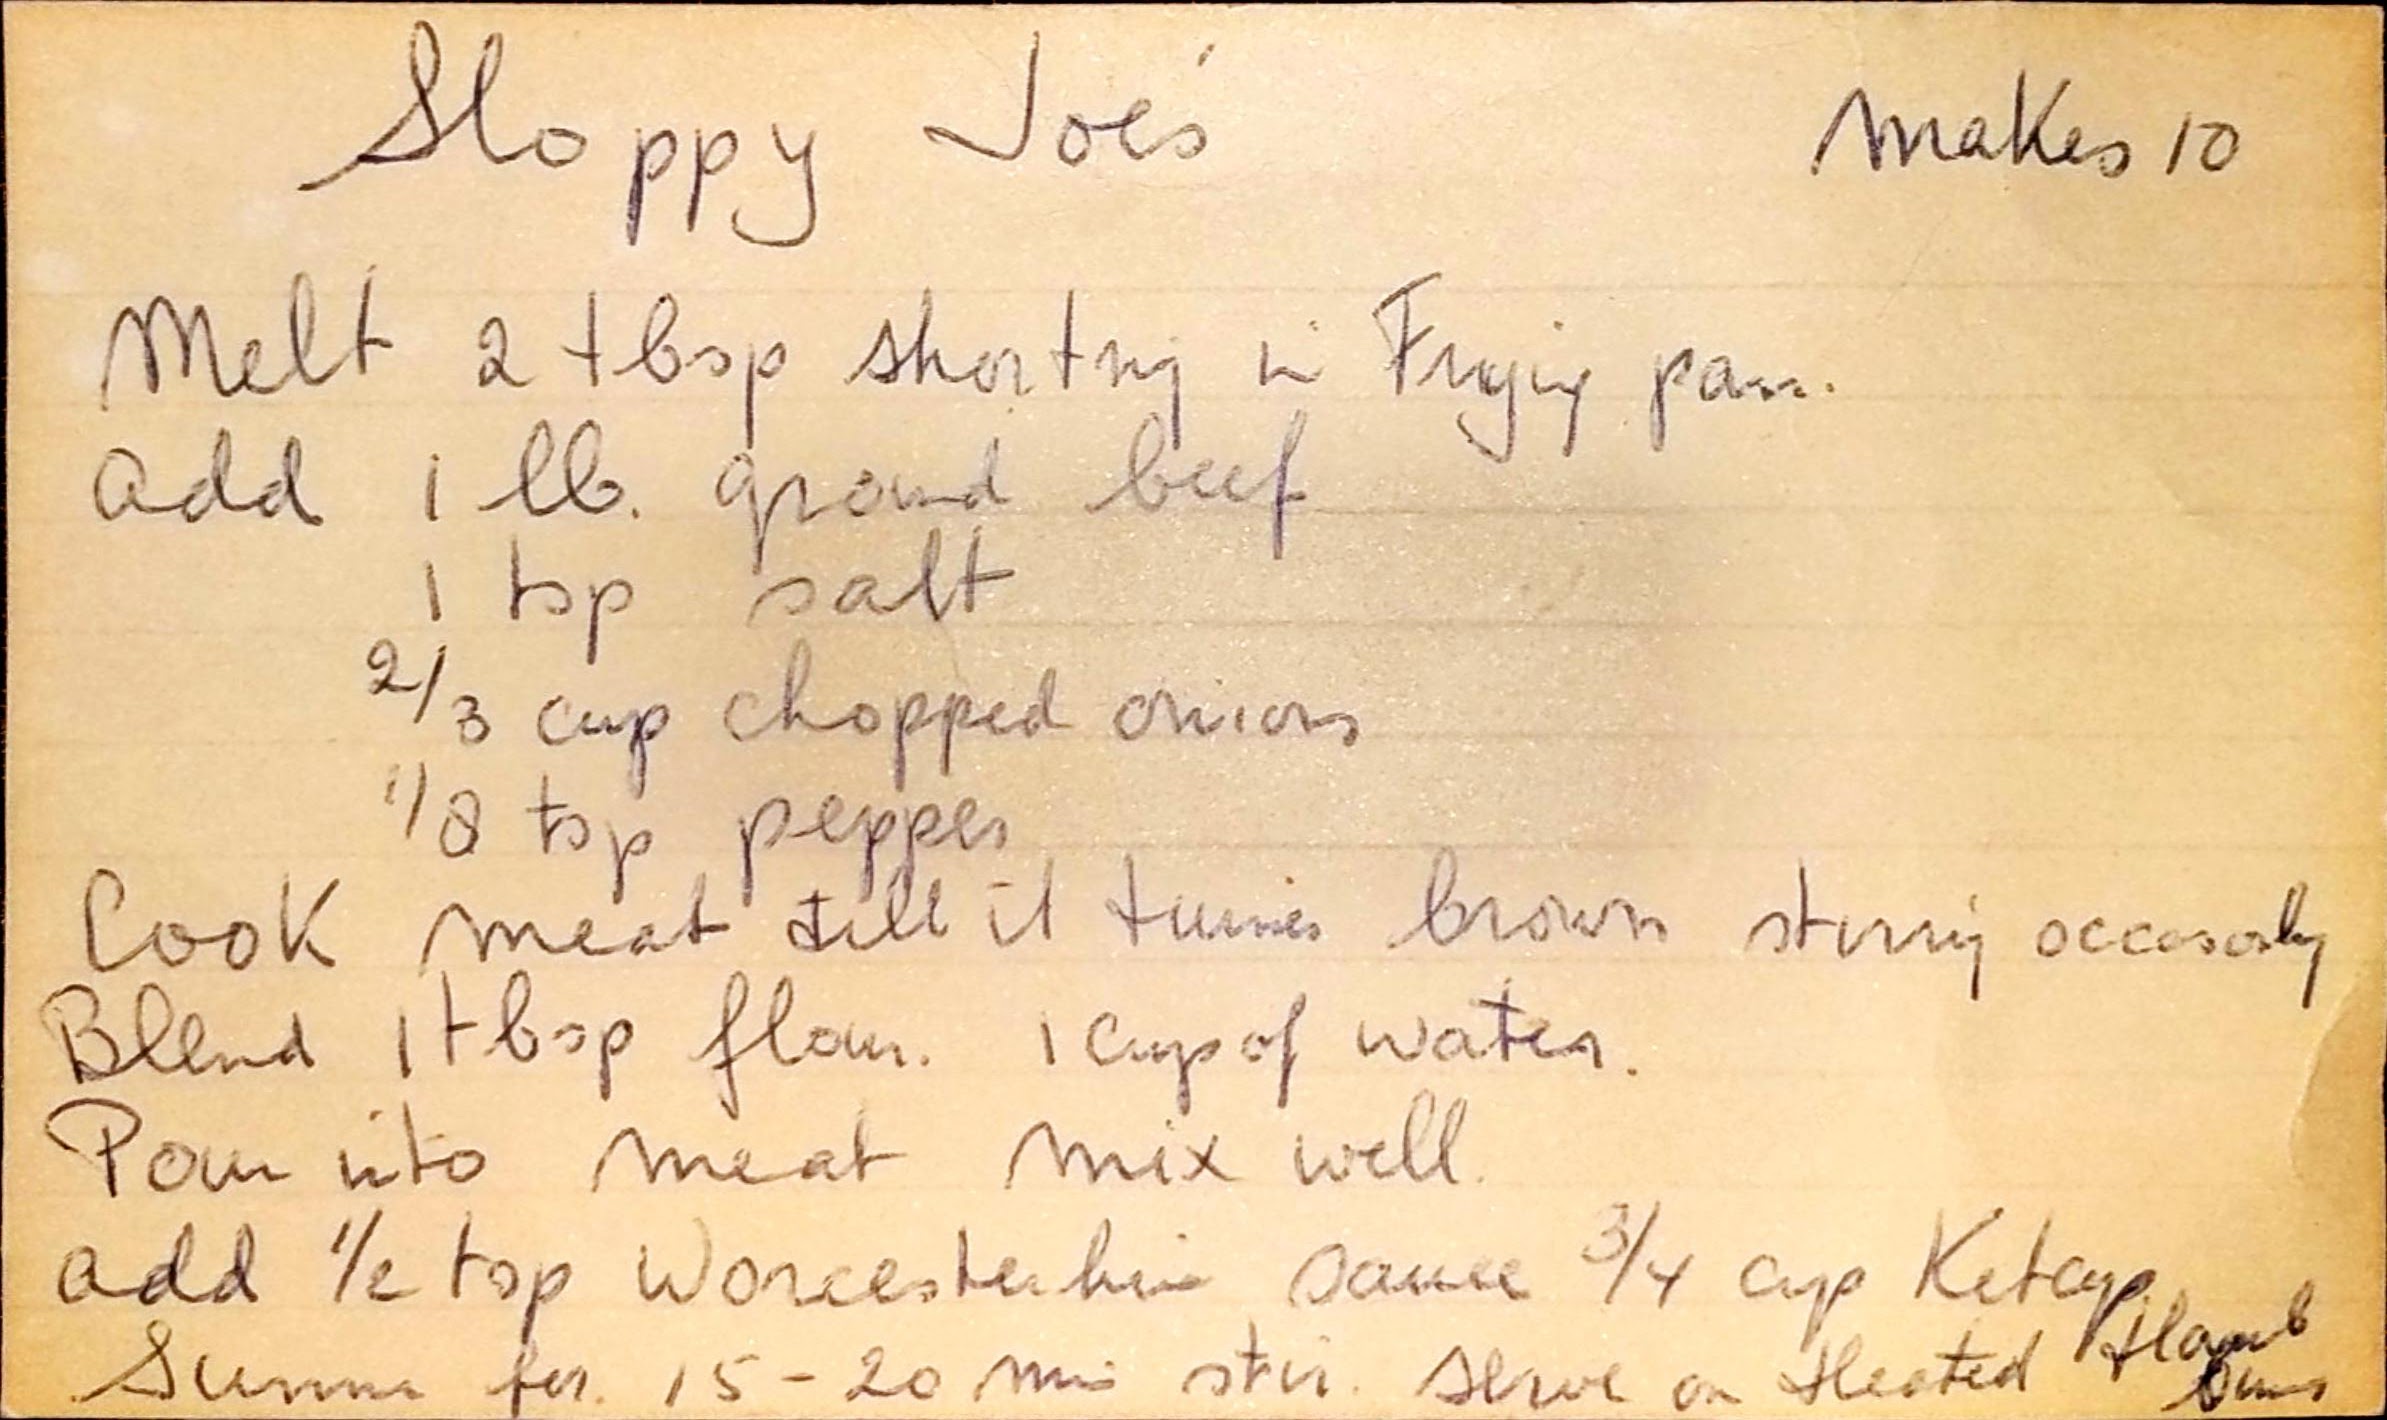 Sloppy Joe's
Makes 10
Melt 2 tbsp shortnig in Frying pan.
Add 1 lb. ground beef
1 tsp salt
2/3 cup chopped onions
1/8 tsp pepper
Cook meat till it turns brown stirrig
Blend 1 tbsp flour. 1 cup of water.
Pour into meat mix well.
Add 1/2 tsp Worcestershire sauce 3/4 cup Ketcup
Simmer for 15-20 min stir. Serve on Heated Hamb
Buns